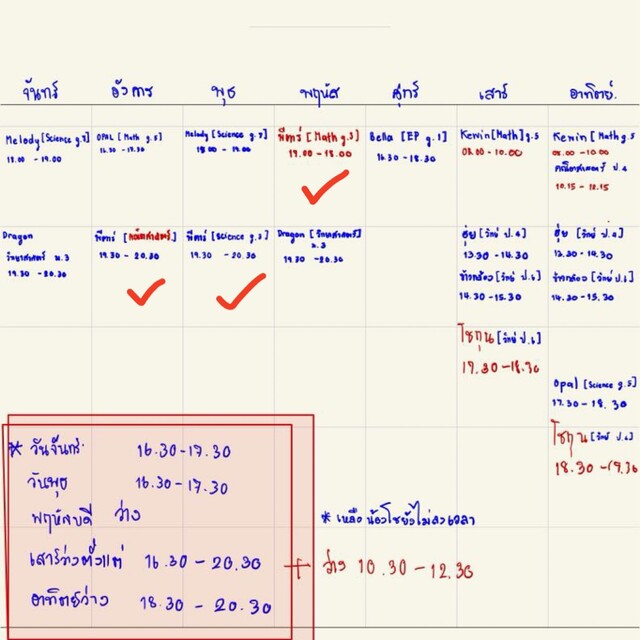 จันทร์ อังคาร พุธ พฤหัส ศุกร์ เสาร์ อาทิตย์
Melody [Science g.7]
18.00 - 19.00
OPAL [Math g.5]
16.30 - 17.30
Melody [Science g.7]
18.00 - 19.00
พีตาร์ [Math g.3]
17.00 - 18.00
Bella [EP g.1]
16.30 - 18.30
Kewin [Math] g.5
08.00 - 10.00
Kewin [Math g.5
08.00 - 10.00
คณิตศาสตร์ ป.4
10.15 -
Dragon
วิทยาศาสตร์ ม.3
19.30 - 20.30
พีตาร์ [คณิตศาสตร์]
19.30 - 20.30
พีตาร์ [Science g.3]
19.30 - 20.30
Dragon [วิทยาศาสตร์]
ม.3
19.30 - 20.30
[วิทย์ ป.4]
13.30 - 14.30
ข้าวกล้อง [วิทย์ ป.6]
14.30 - 15.30
[วิทย์ ป.4]
13.30 - 14.30
ข้าวกล้อง [วิทย์ ป.6]
14.30 - 15.30
โชกุน [วิทย์ ป.6]
17.30 - 18.30
Opal [Science g.5]
17.30 - 18.30
โชกุน [วิทย์ ป.6]
18.30 - 19.30
* วันจันทร์ 16.30 - 17.30
วันพุธ 16.30 - 17.30
พฤหัสบดี ว่าง
เสาร์ว่างตั้งแต่ 16.30 - 20.30 + ว่าง 10.30 - 12.30
อาทิตย์ว่าง 18.30 - 20.30
* เหลือน้องโชยังไม่ลงเวลา